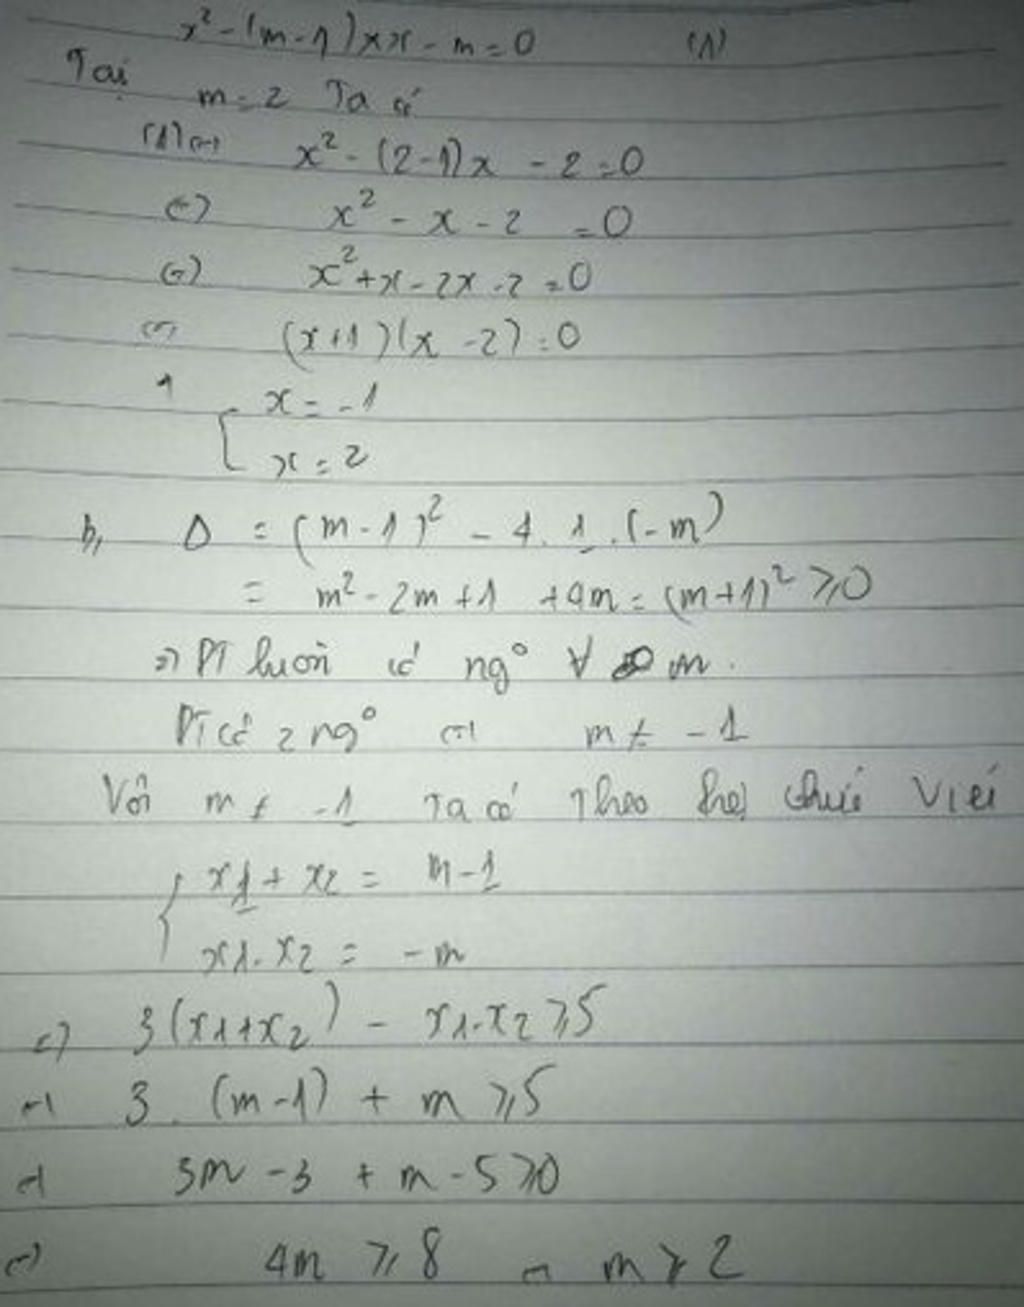 x² - (m-1)xx - m = 0 (1)
Tại m = 2 Ta có
(1) <=> x² - (2-1)x - 2 = 0
<=> x² - x - 2 = 0
<=> x² + x - 2x - 2 = 0
<=> (x+1)(x-2) = 0
[ x = -1
x = 2
b, Δ = (m-1)² - 4.1.(-m)
= m² - 2m + 1 + 4m = (m+1)² ≥ 0
=> PT luôn có ng° ∀ m.
PT có 2 ng° <=> m ≠ -1
Với m ≠ -1 Ta có Theo hệ thức Viét
{ x1 + x2 = m-1
x1.x2 = -m
3(x1+x2) - x1.x2 ≥ 5
<=> 3.(m-1) + m ≥ 5
<=> 3m - 3 + m - 5 ≥ 0
<=> 4m ≥ 8 <=> m ≥ 2